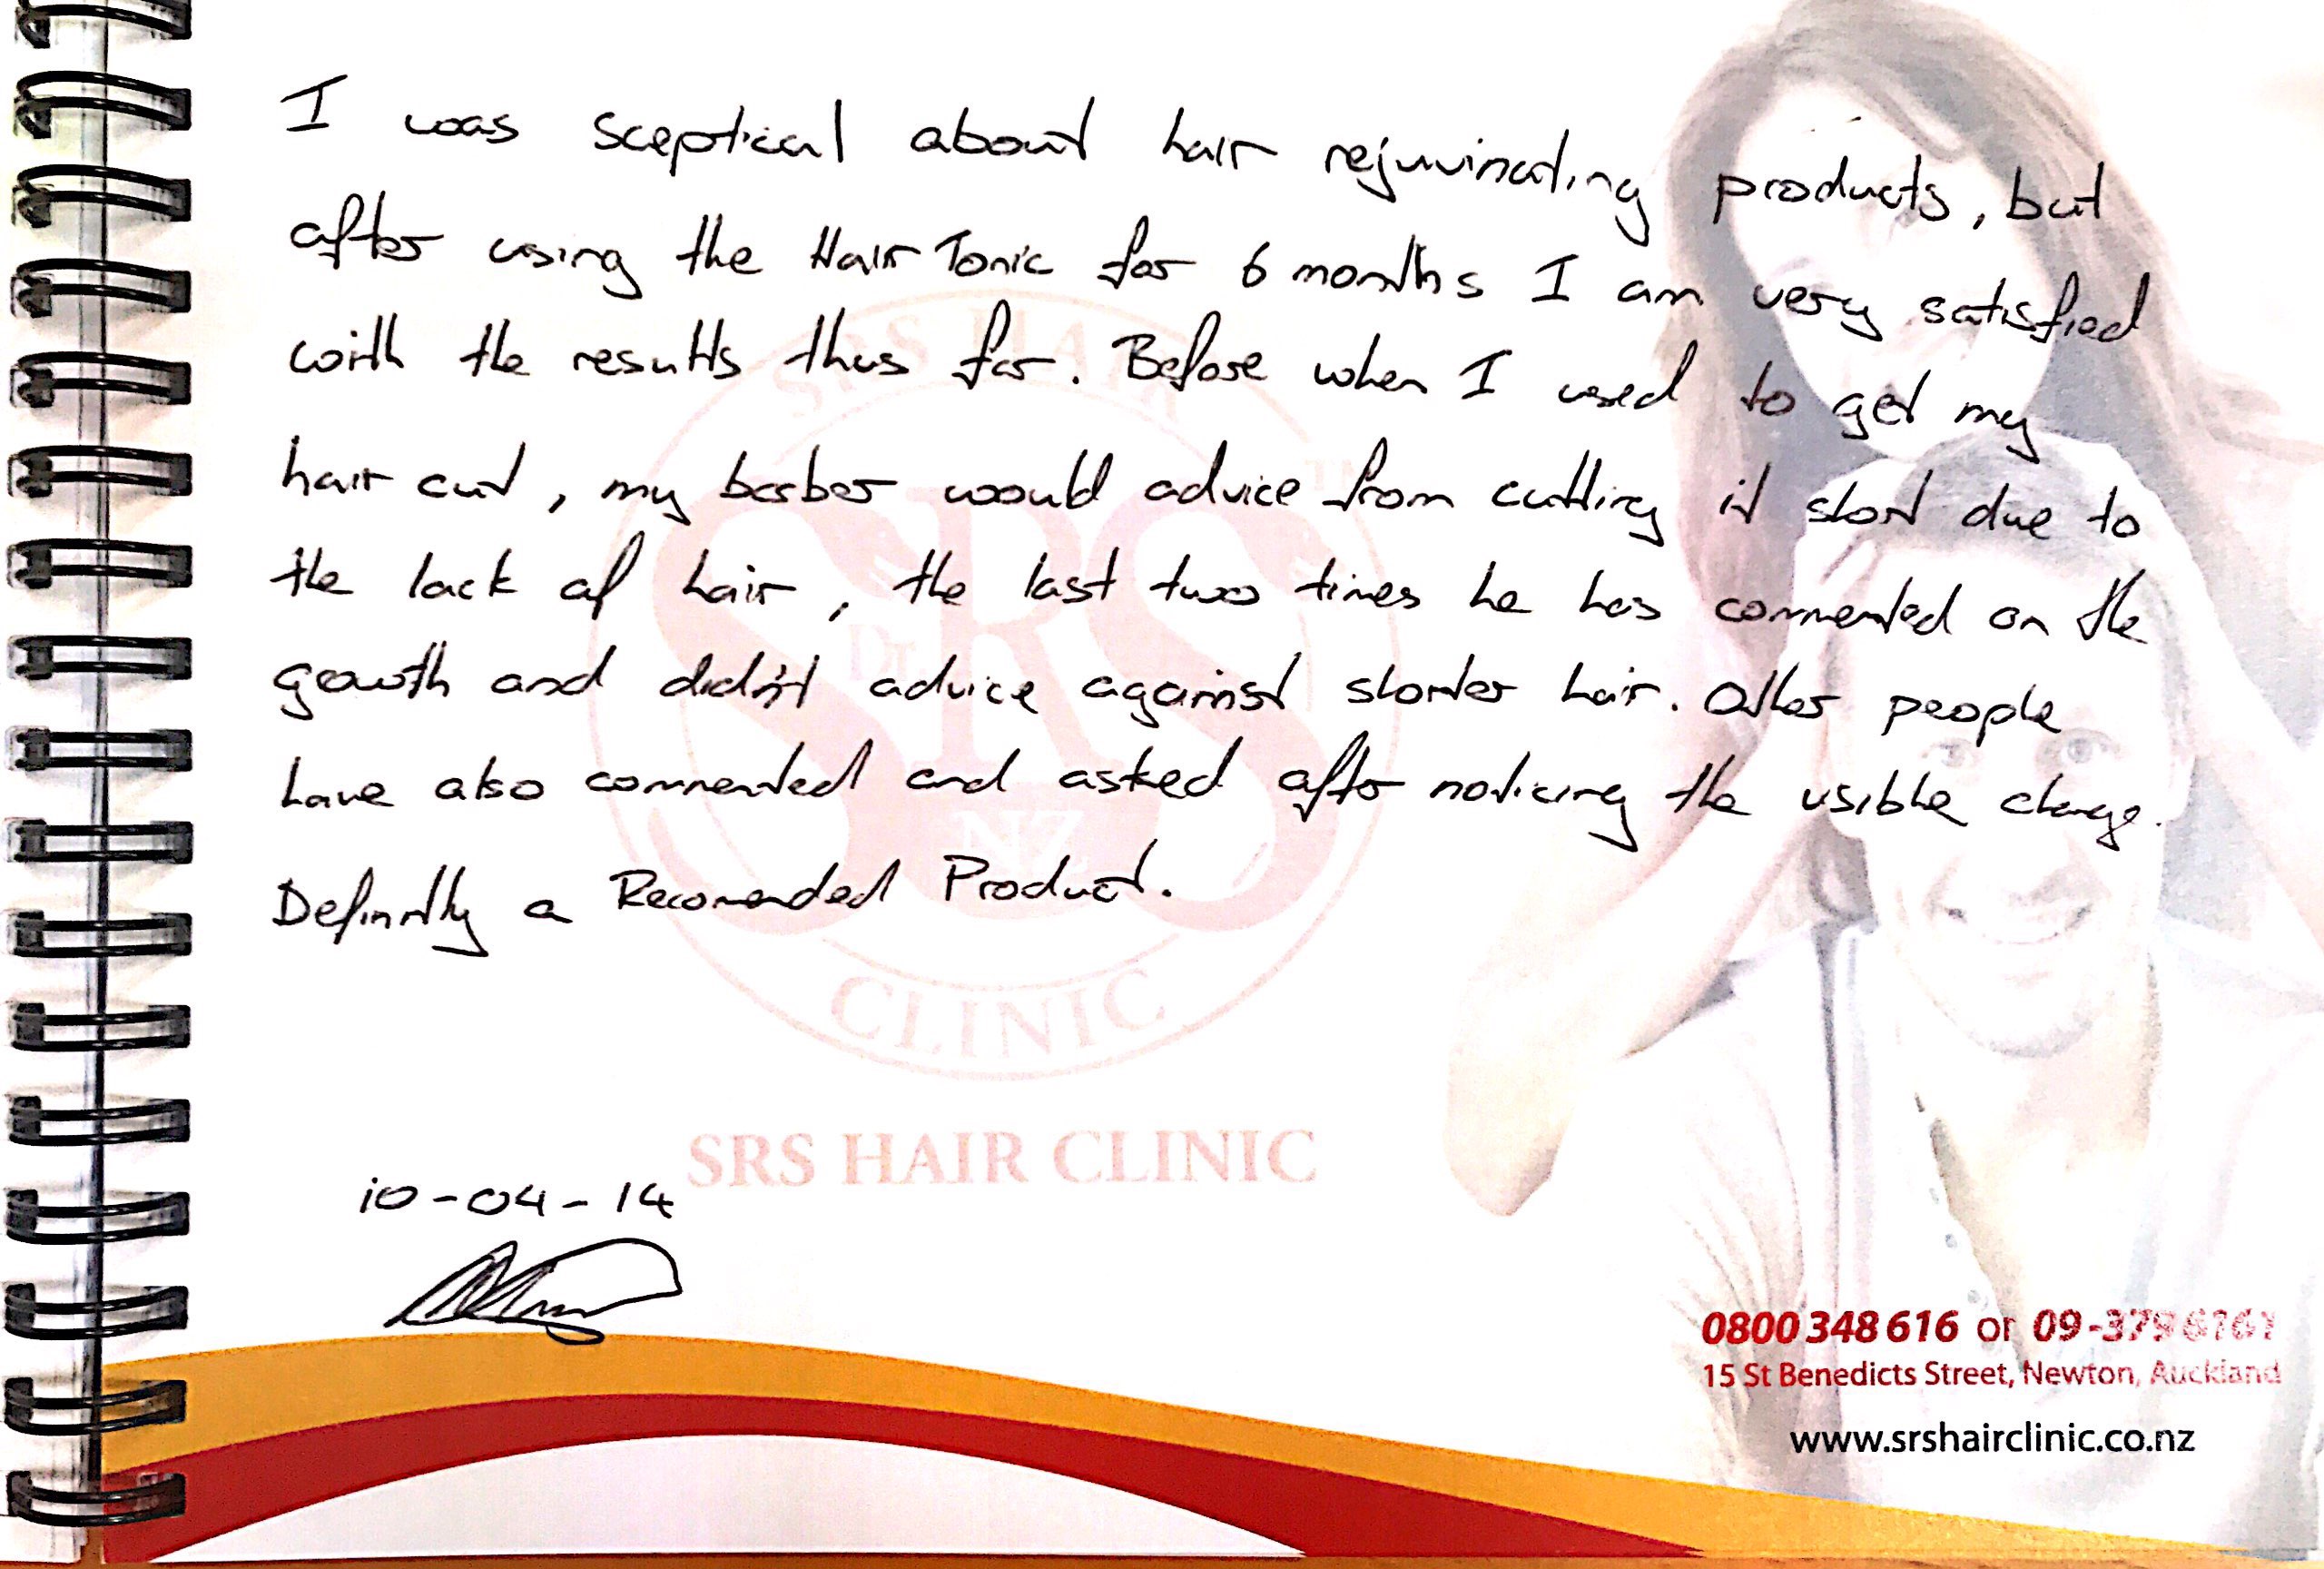 I was sceptical about hair rejuvinating products, but
after using the Hair Tonic for 6 months I am very satisfied
with the results thus far. Before when I used to get my
hair cut, my barber would advice from cutting it short due to
the lack of hair, the last two times he has commented on the
growth and didn't advice against shorter hair. Other people
have also commented and asked after noticing the visible change.
Definitly a Recomended Product.
SRS HAIR
TM
Dr.
SRS
NZ
CLINIC
SRS HAIR CLINIC
10-04-14
0800 348 616 or 09-379
15 St Benedicts Street, Newton, Auckland
www.srshairclinic.co.nz